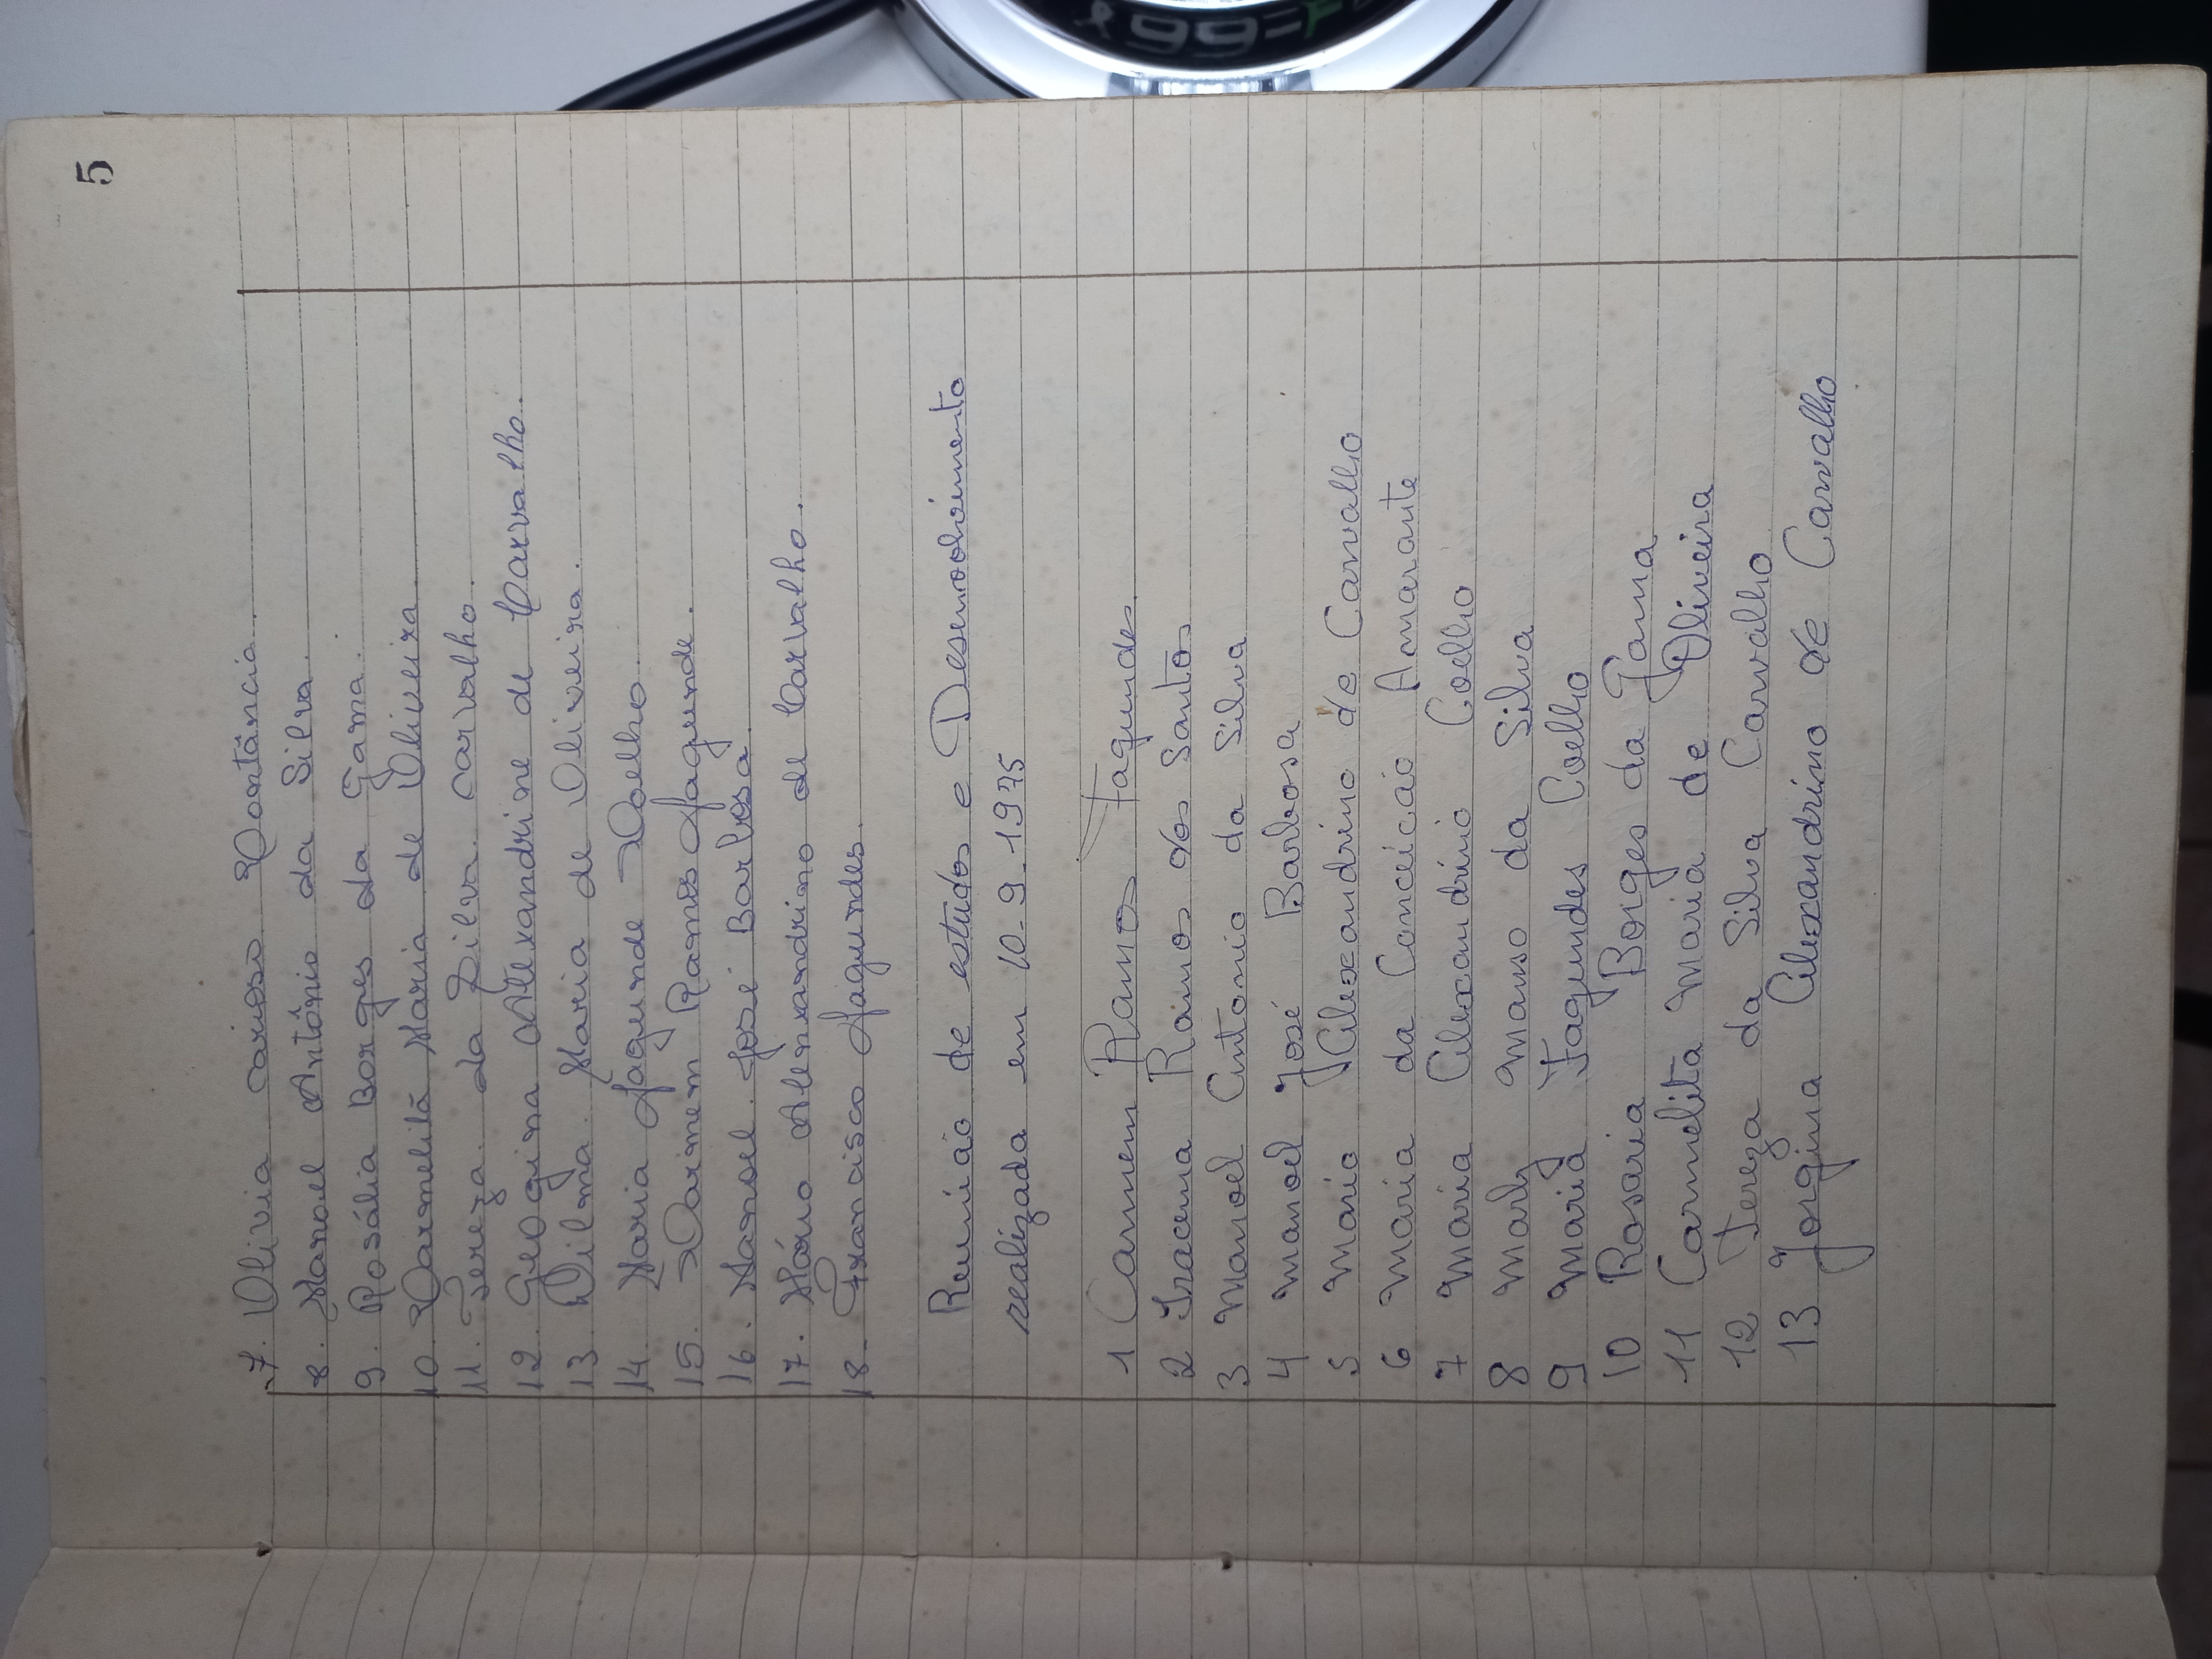 5
7. Olivia carioso Constância.
8. Manoel Antônio da Silva.
9. Rosália Borges da Gama.
10. Carmelitã Maria de Oliveira
11. Tereza. da Silva. carvalho.
12. Geogina Alexandrine de Carvalho.
13. Dilma. Maria de Oliveira.
14. Maria Fagunde Coelho.
15. Carmem Ramos Fagunde.
16. Manoel José Barbosa.
17. Mário Alenxandrino de Carvalho.
18. Francisco Fagundes.
Reunião de estudos e Desenvolvimento
realizada em 10-9-1975
1 Carmem Ramos Fagundes
2 Iracema Ramos dos Santos
3 Manoel Antonio da Silva
4 Manoel José Barbosa
5 Mário Alexandrino de Carvalho
6 Maria da Conceicão Amarante
7 Maria Alexandrino Coelho
8 Marly Manso da Silva
9 Maria Fagundes Coelho
10 Rosaria Borges da Gama
11 Carmelita Maria de Oliveira
12 Tereza da Silva Carvalho
13 Jorgina Alexandrino de Carvalho